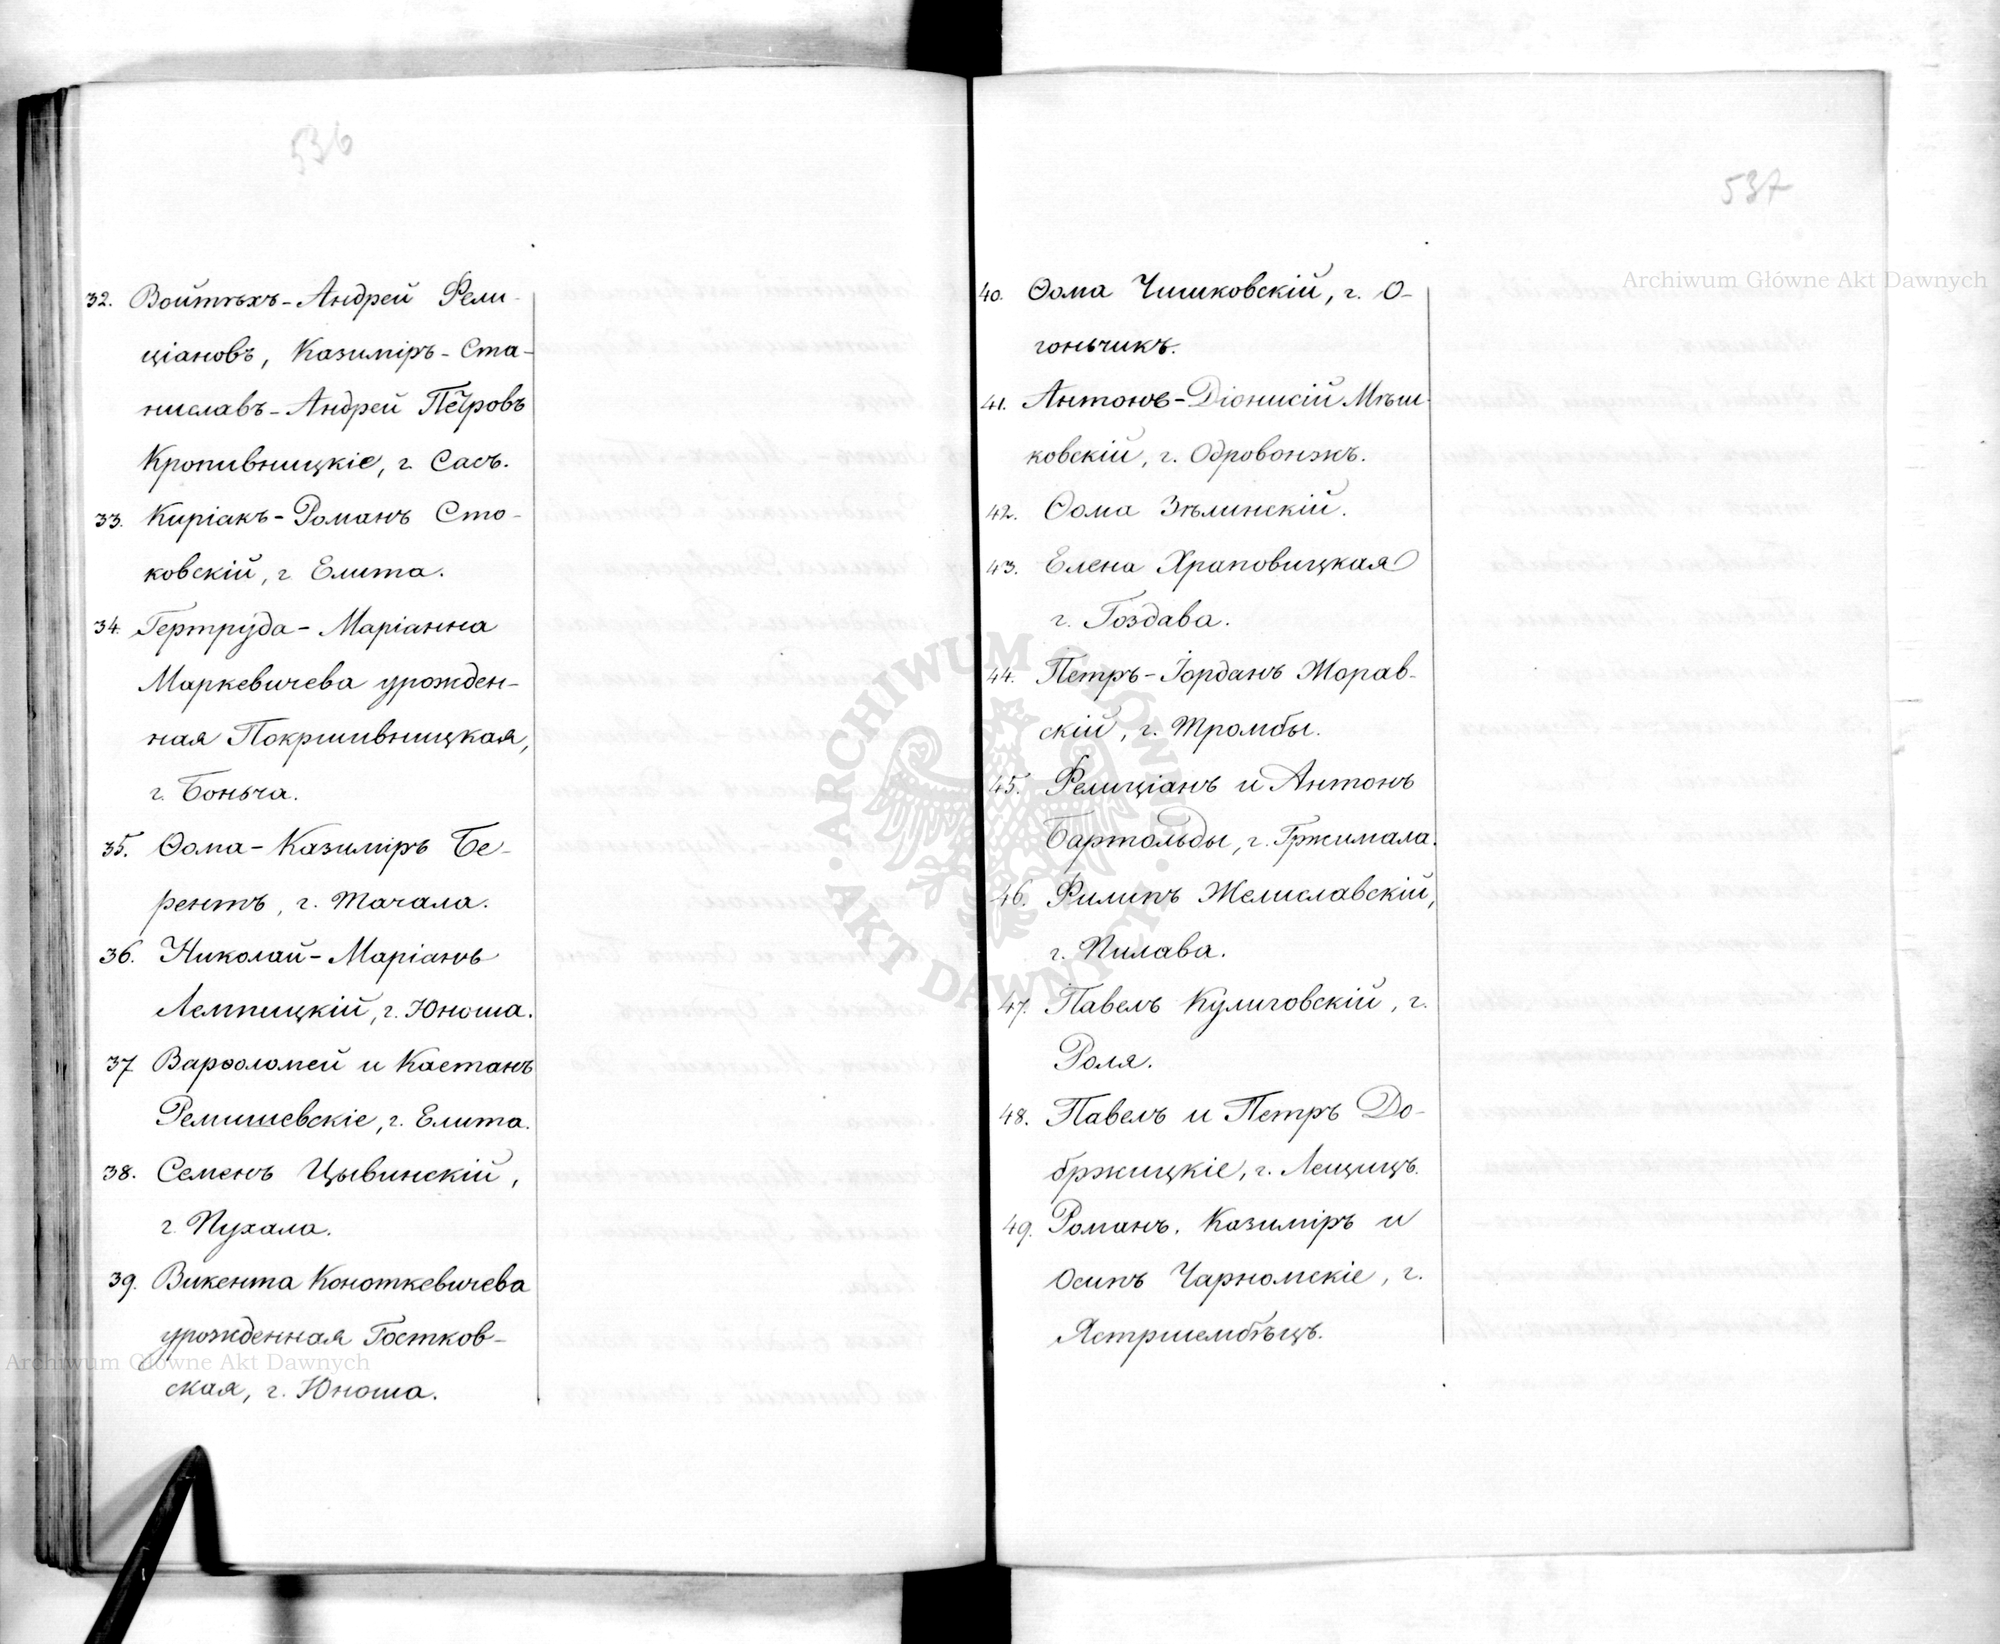 536
32. Войтѣхъ-Андрей Фели-
ціановъ, Казиміръ-Ста-
ниславъ-Андрей Петровъ
Кропивницкіе, г. Сасъ.
33. Киріакъ-Романъ Сто-
ковскій, г. Елита.
34. Гертруда-Маріанна
Маркевичева урожден-
ная Покршивницкая,
г. Боньча.
35. Ѳома-Казиміръ Бе-
рентъ, г. Тачала.
36. Николай-Маріанъ
Лемпицкій, г. Юноша.
37 Варѳоломей и Каетанъ
Ремишевскіе, г. Елита.
38. Семенъ Цывинскій,
г. Пухала.
39. Викента Коноткевичева
урожденная Гостков-
ская, г. Юноша.
537
40. Ѳома Чишковскій, г. О-
гоньчикъ.
41. Антонъ-Діонисій Мѣш-
ковскій, г. Одровонжъ.
42. Ѳома Зѣлинскій.
43. Елена Храповицкая
г. Гоздава.
44. Петръ-Іорданъ Морав-
скій, г. Тромбы.
45. Фелиціанъ и Антонъ
Бартольды, г. Гржимала.
46. Филипъ Желиславскій,
г. Пилава.
47. Павелъ Кулиговскій, г.
Роля.
48. Павелъ и Петръ До-
бржицкіе, г. Лещицъ.
49. Романъ, Казиміръ и
Осипъ Чарномскіе, г.
Ястршембѣцъ.
Archiwum Główne Akt Dawnych
ARCHIWUM GŁÓWNE AKT DAWNYCH
Archiwum Główne Akt Dawnych